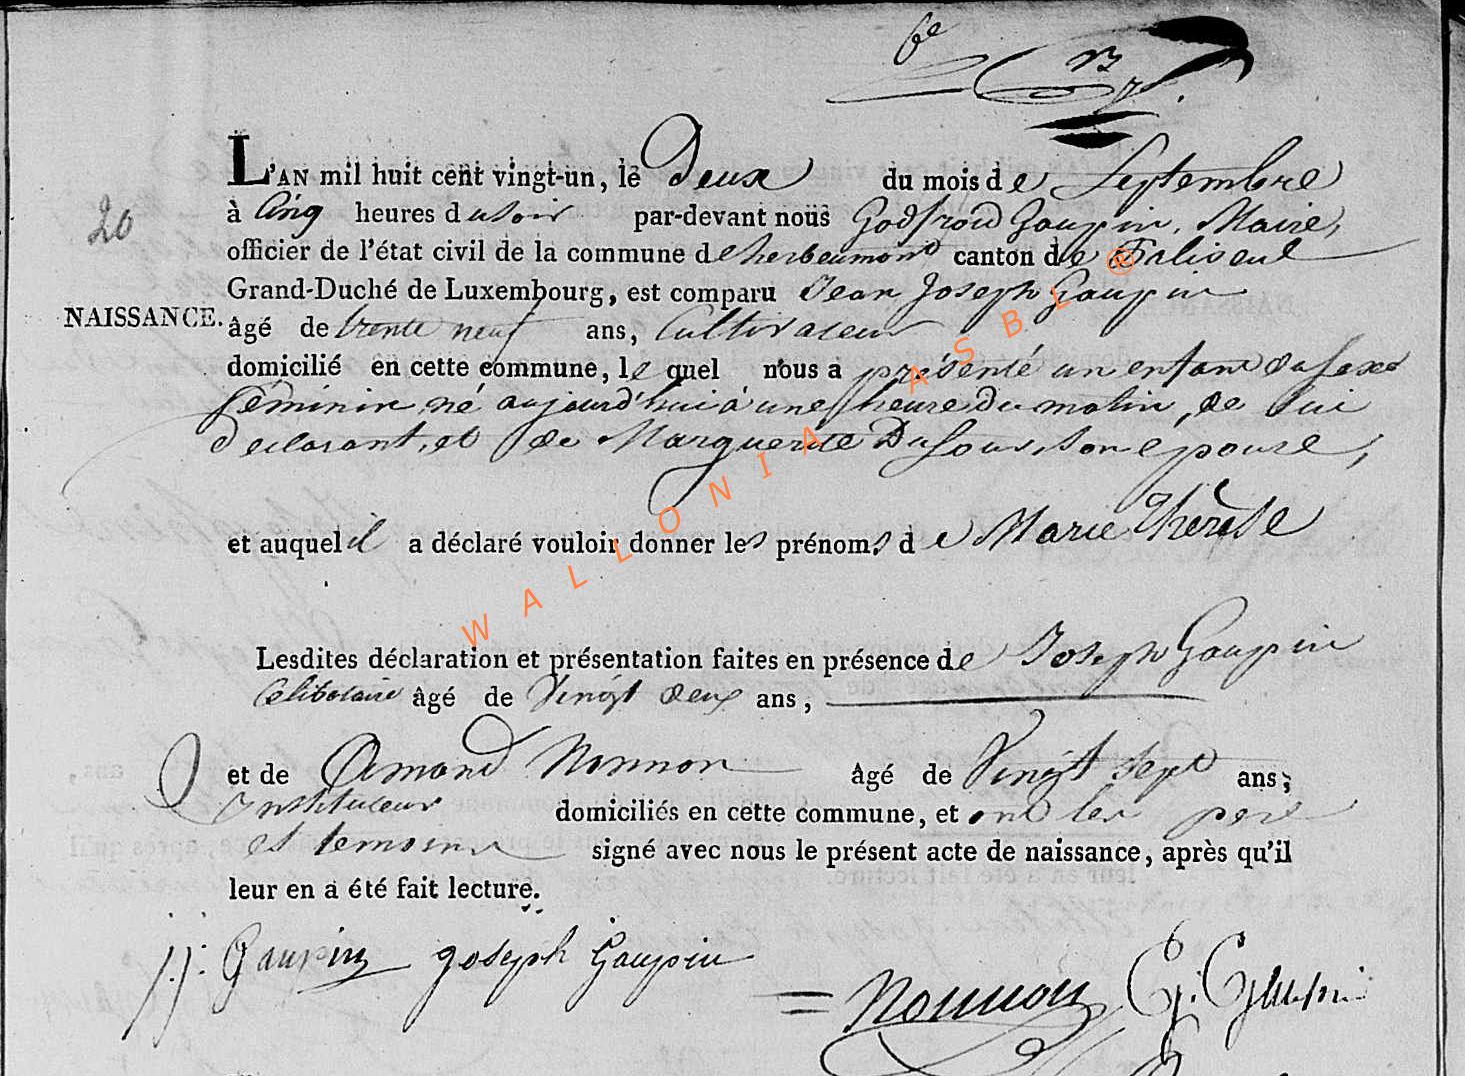 6e
L'AN mil huit cent vingt-un, le Deux du mois de Septembre
20
à Cinq heures du soir par-devant nous Godfroid Gaupin, Maire,
officier de l'état civil de la commune de herbeumont canton de Paliseul
Grand-Duché de Luxembourg, est comparu Jean Joseph Gaupin
NAISSANCE.
âgé de trente neuf ans, Cultivateur
domicilié en cette commune, le quel nous a présenté un enfant du sexe
féminin, né aujourd'hui à une heure du matin, de lui
declarant, et de Marguerite Dufour, son épouse,
et auquel il a déclaré vouloir donner les prénoms de Marie Thérèse
Lesdites déclaration et présentation faites en présence de Joseph Gaupin
Celibataire âgé de Vingt deux ans,
et de Amand Nonnon âgé de Vingt Sept ans;
Instituteur domiciliés en cette commune, et ont les pere
et temoins signé avec nous le présent acte de naissance, après qu'il
leur en a été fait lecture.
j.j. Gaupin Joseph Gaupin
Nonnon G. Gaupin
WALLONIA ASBL ®